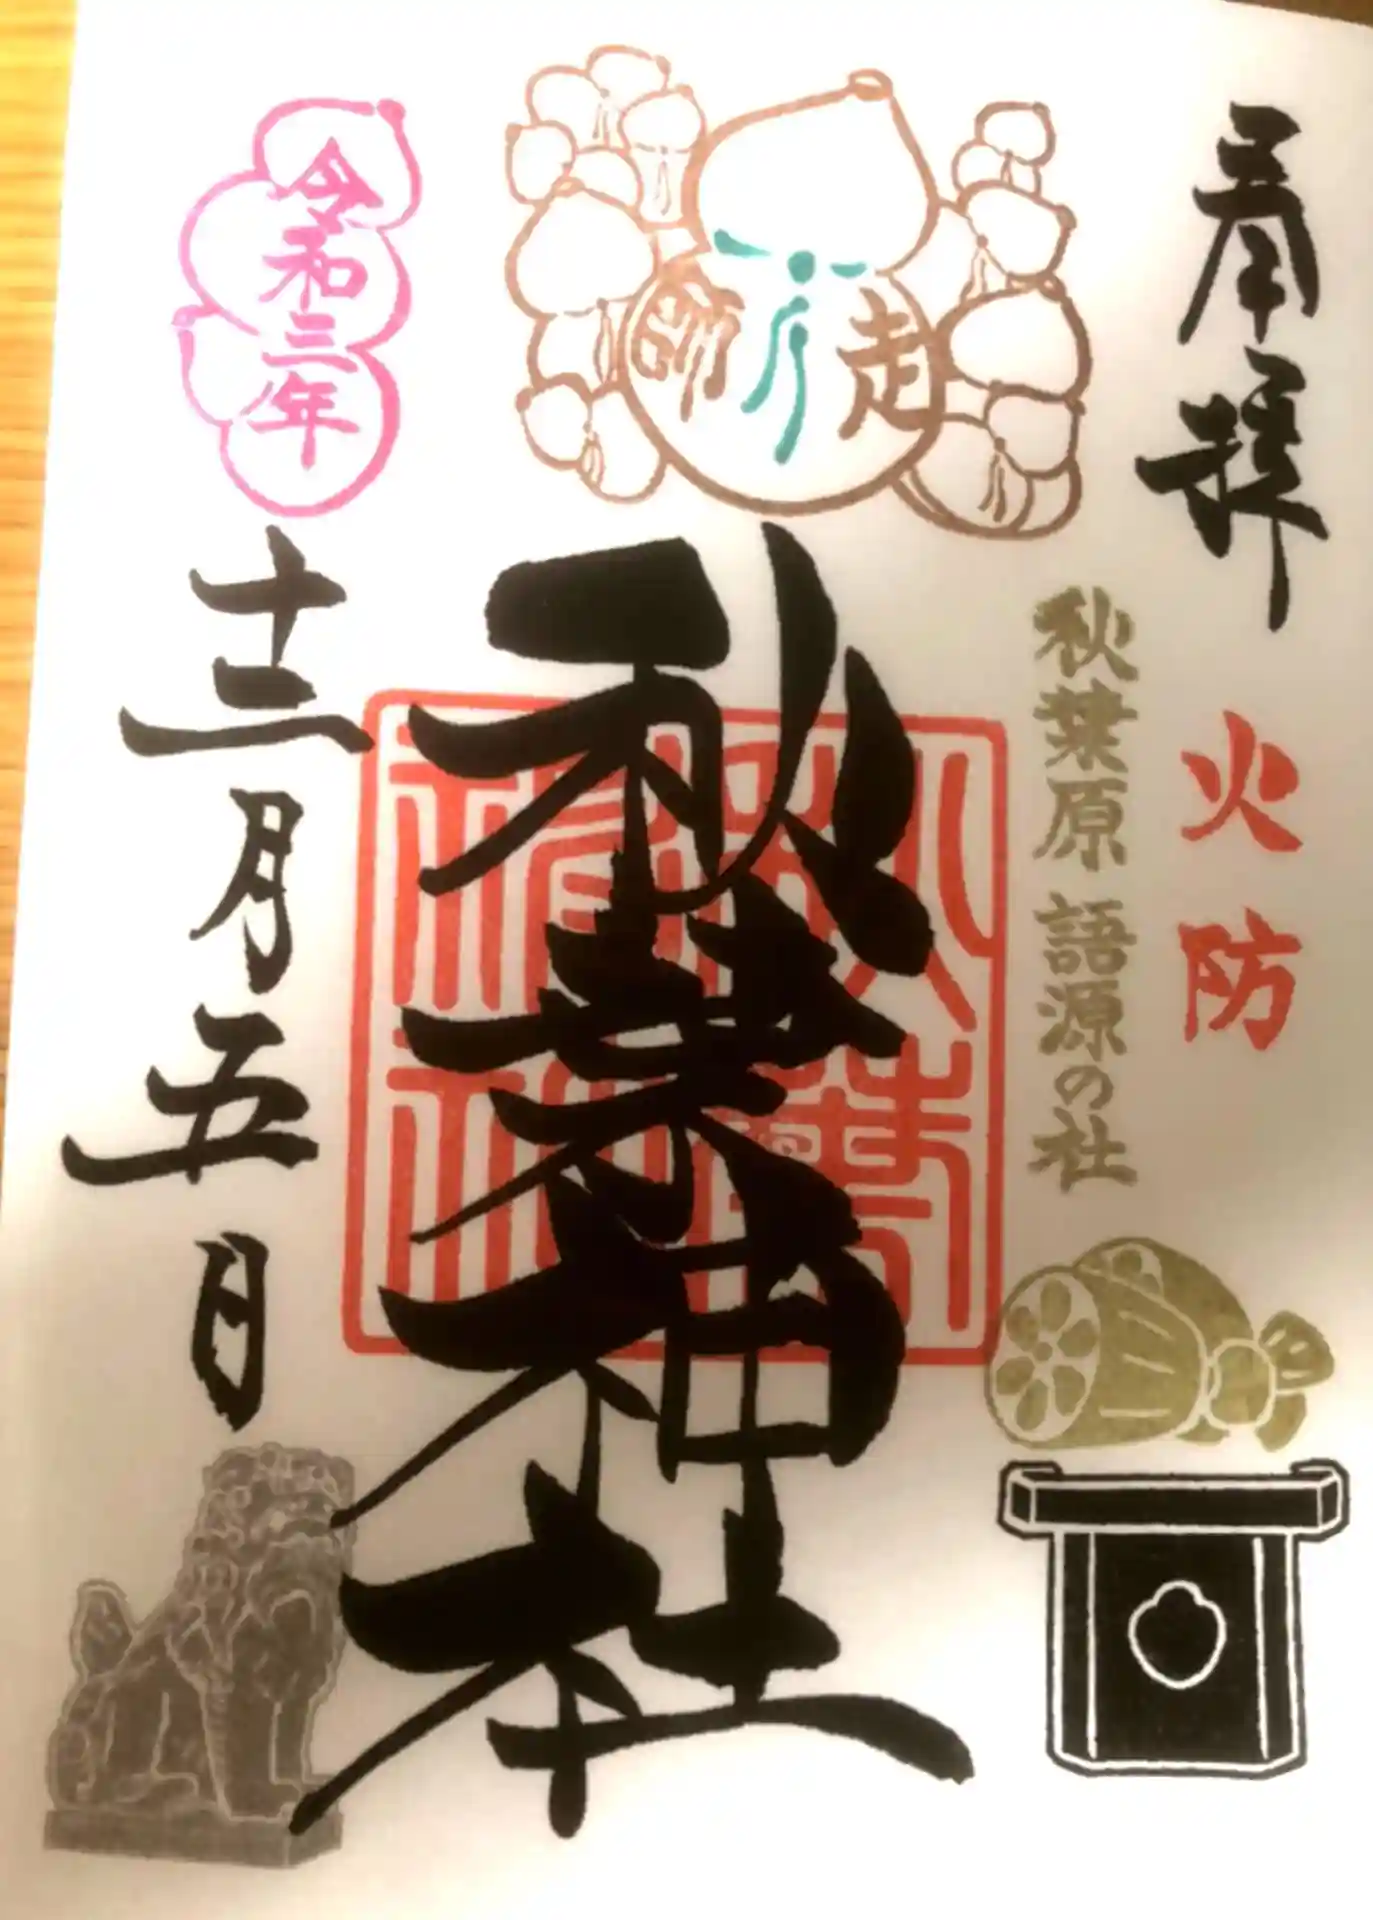 奉拝
火防
秋葉原 語源の社
師走
秋葉神社
秋葉神社
令和三年
十二月五日